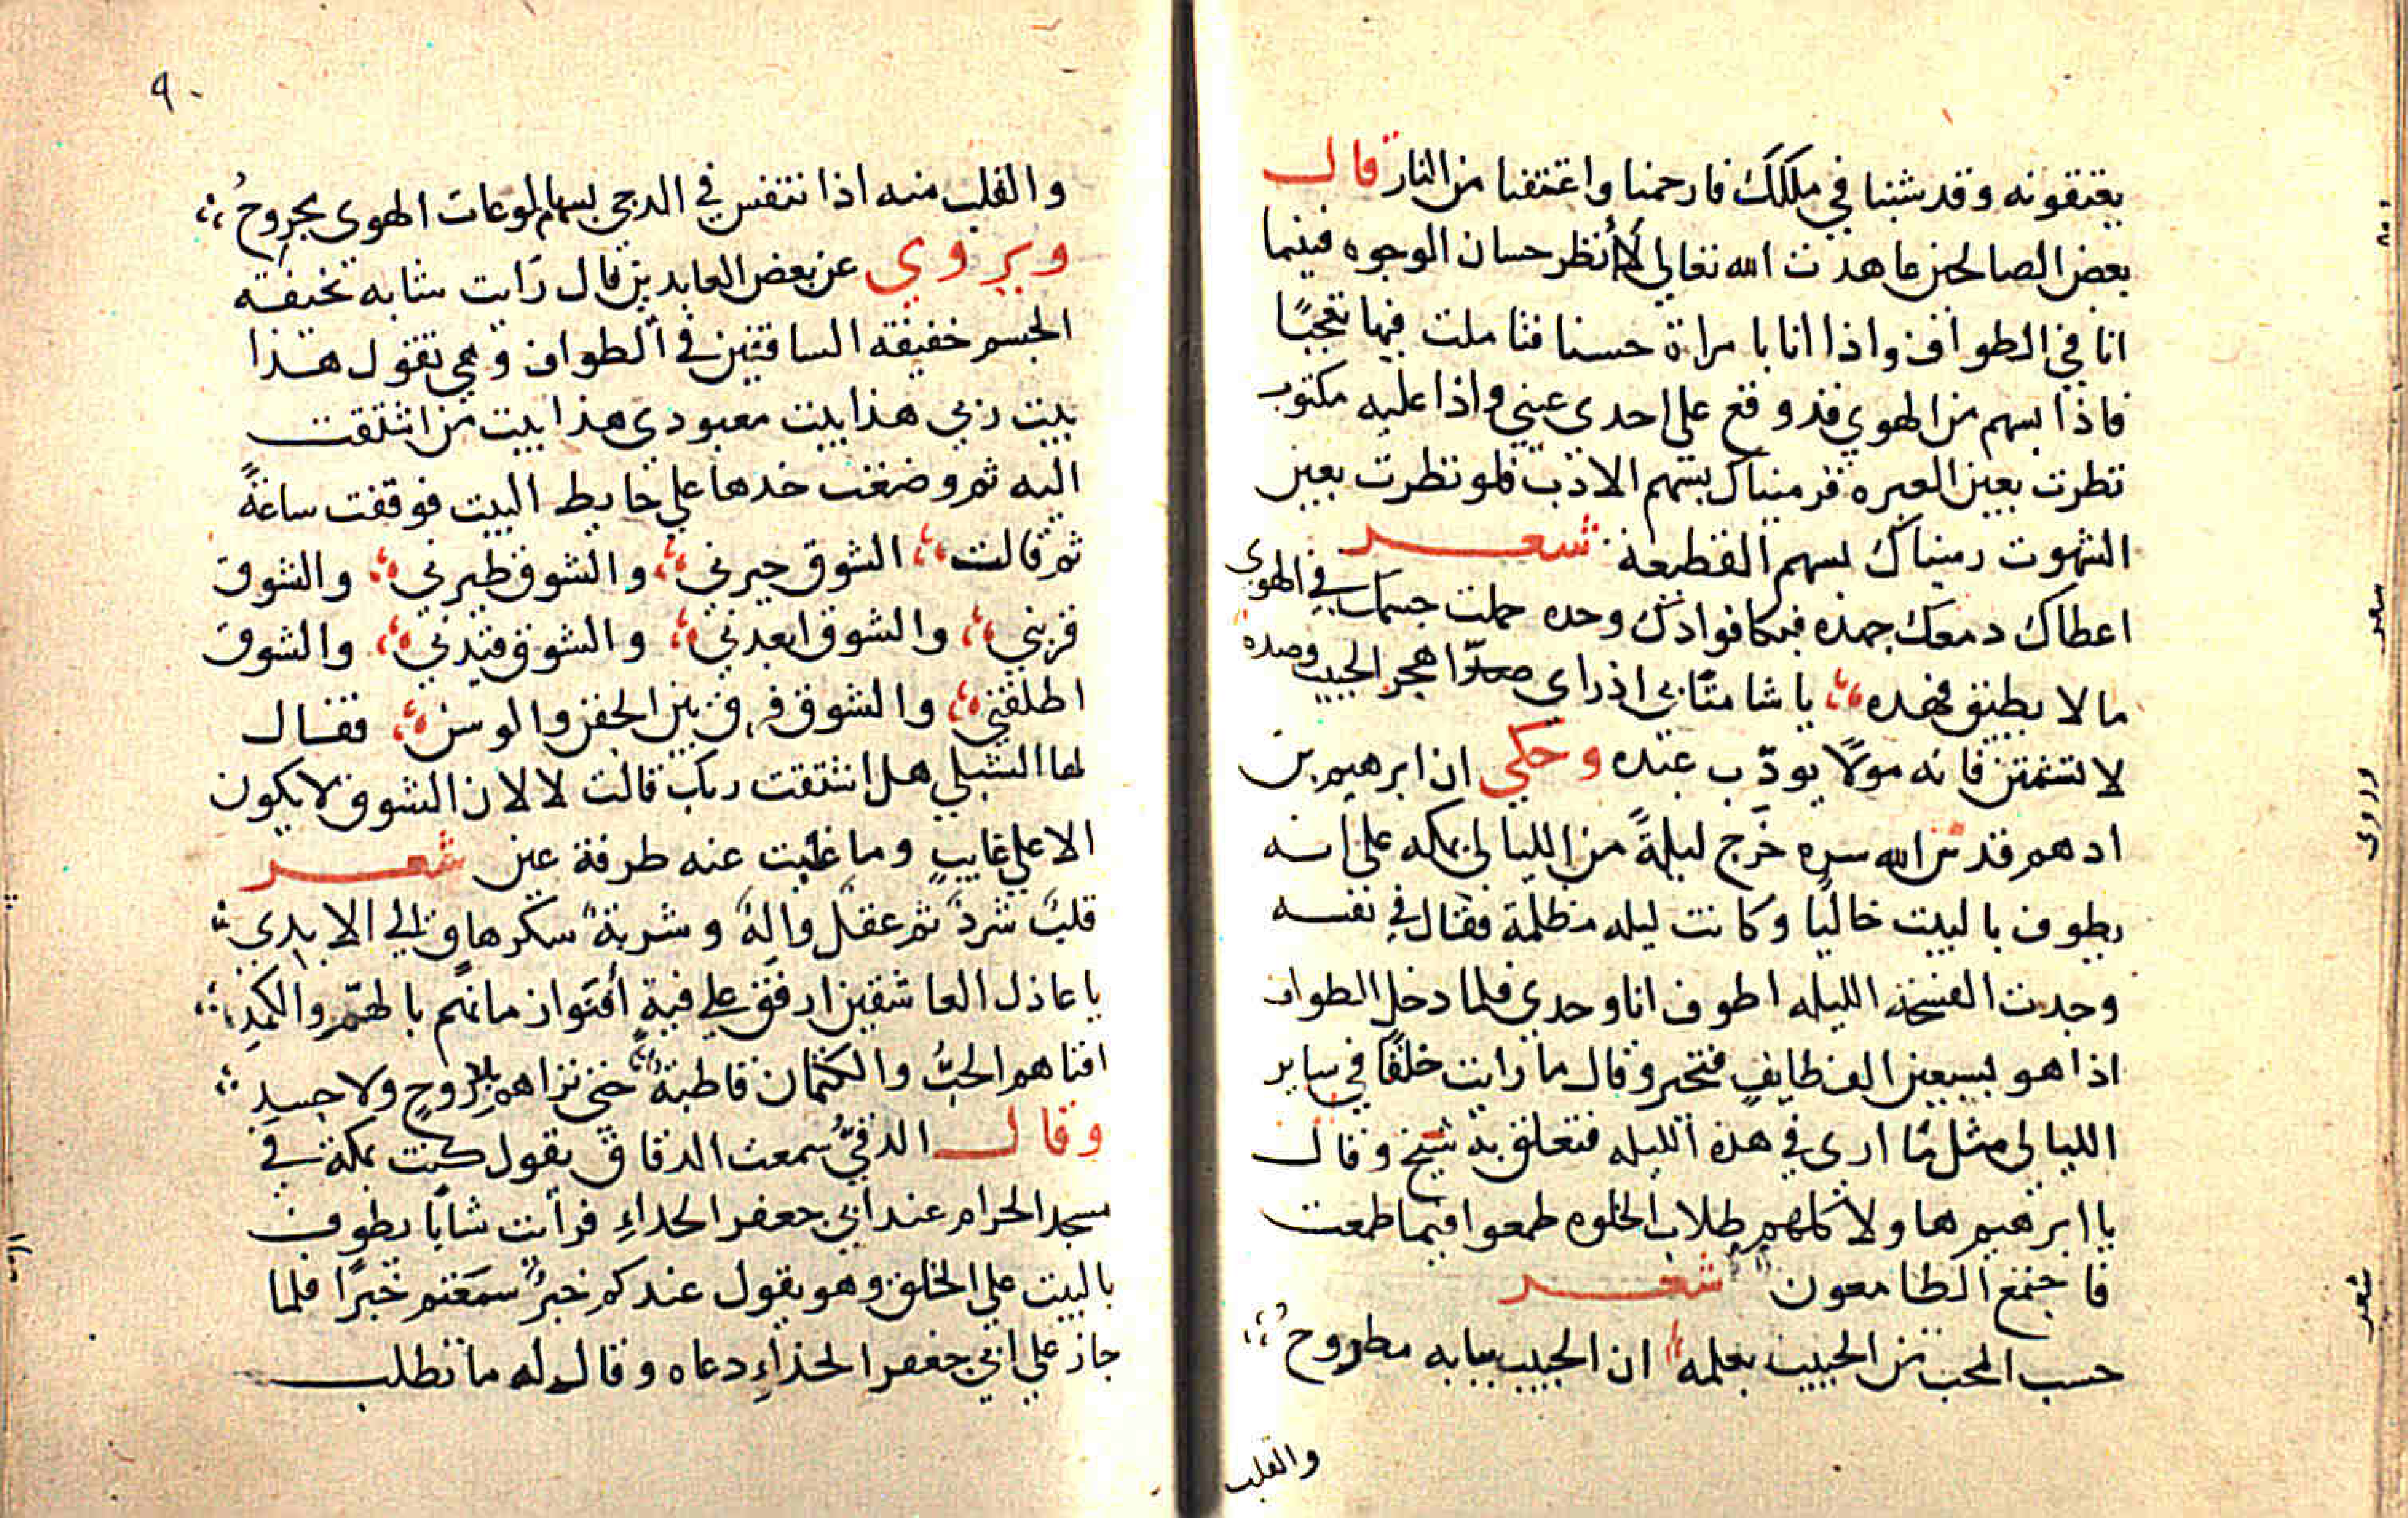 يعتقونه وقد شبنا في ملكك فارحمنا واعتقنا من النار قال
بعض الصالحين عاهدت الله تعالي لا أنظر حسان الوجوه فبينما
انا في الطواف واذا انا بامراة حسنا فتاملت فيها تعجبًا
فاذا بسهم من الهوي قد وقع علي احدي عيني واذا عليه مكتوب
نظرت بعين العبره فرميناك بسهم الادب فلو نظرت بعين
الشهوت رميناك بسهم القطيعة شعر
اعطاك دمعك جهده فبكا فوادك وحده حملت جسمك في الهوي
ما لا يطيق فهده يا شامتًا بي اذ راي صدّا هجر الحبيب وصده
لا تشمتن فانه مولًا يودّب عبده وحكي ان ابرهيم بن
ادهم قدس الله سره خرج ليلةً من الليالي بمكه علي انه
يطوف بالبيت خاليًا وكانت ليله مظلمة فقال في نفسه
وجدت الفسحه الليله اطوف انا وحدي فلما دخل الطواف
اذا هو بسبعين الف طايفٍ فتحير وقال ما رايت خلقًا في ساير
الليالي مثل ما اري في هذه الليله فتعلق به شيخ وقال
يا ابرهيم هاولا كلهم طلاب الخلوه طمعوا فيما طمعت
فاجتمع الطامعون شعر
حسب المحب من الحبيب بعلمه ان الحبيب ببابه مطروح
والقلب
٩٠
والقلب منه اذا تنفس في الدجي بسهام لوعات الهوي مجروح
ويروي عن بعض العابدين قال رايت شابه نحيفة
الجسم خفيفة الساقين في الطواف وهي تقول هذا
بيت ربي هذا بيت معبودي هذا بيت من اشتقت
اليه ثم وضعت خدها علي حايط البيت فوقفت ساعةً
ثم قالت الشوق حيرني والشوق طيرني والشوق
قربني والشوق ابعدني والشوق قيدني والشوق
اطلقني والشوق فرق بين الجفن والوسن فقال
لها الشبلي هل اشتقت ربك قالت لا لان الشوق لا يكون
الا علي غايبٍ وما غبت عنه طرفة عين شعر
قلبٌ شردٌ ثم عقلٌ والهٌ وشربةٌ سكرها باقٍ الي الابدي
يا عاذل العاشقين ارفق علي فيةٍ أفنوا زمانهم بالهمّ والكمدِ
افناهم الحبُّ والكتمان قاطبةً حتي تراهم بلا روحٍ ولا جسدِ
وقال الدقيُّ سمعت الدقاق يقول كنت بمكة في
سجد الحرام عند ابي جعفر الحداءِ فرأيت شابًا يطوف
بالبيت علي الخلق وهو يقول عندكم خبرٌ سمعتم خبرًا فلما
جاز علي ابي جعفر الحذاءِ دعاه وقال له ما تطلب